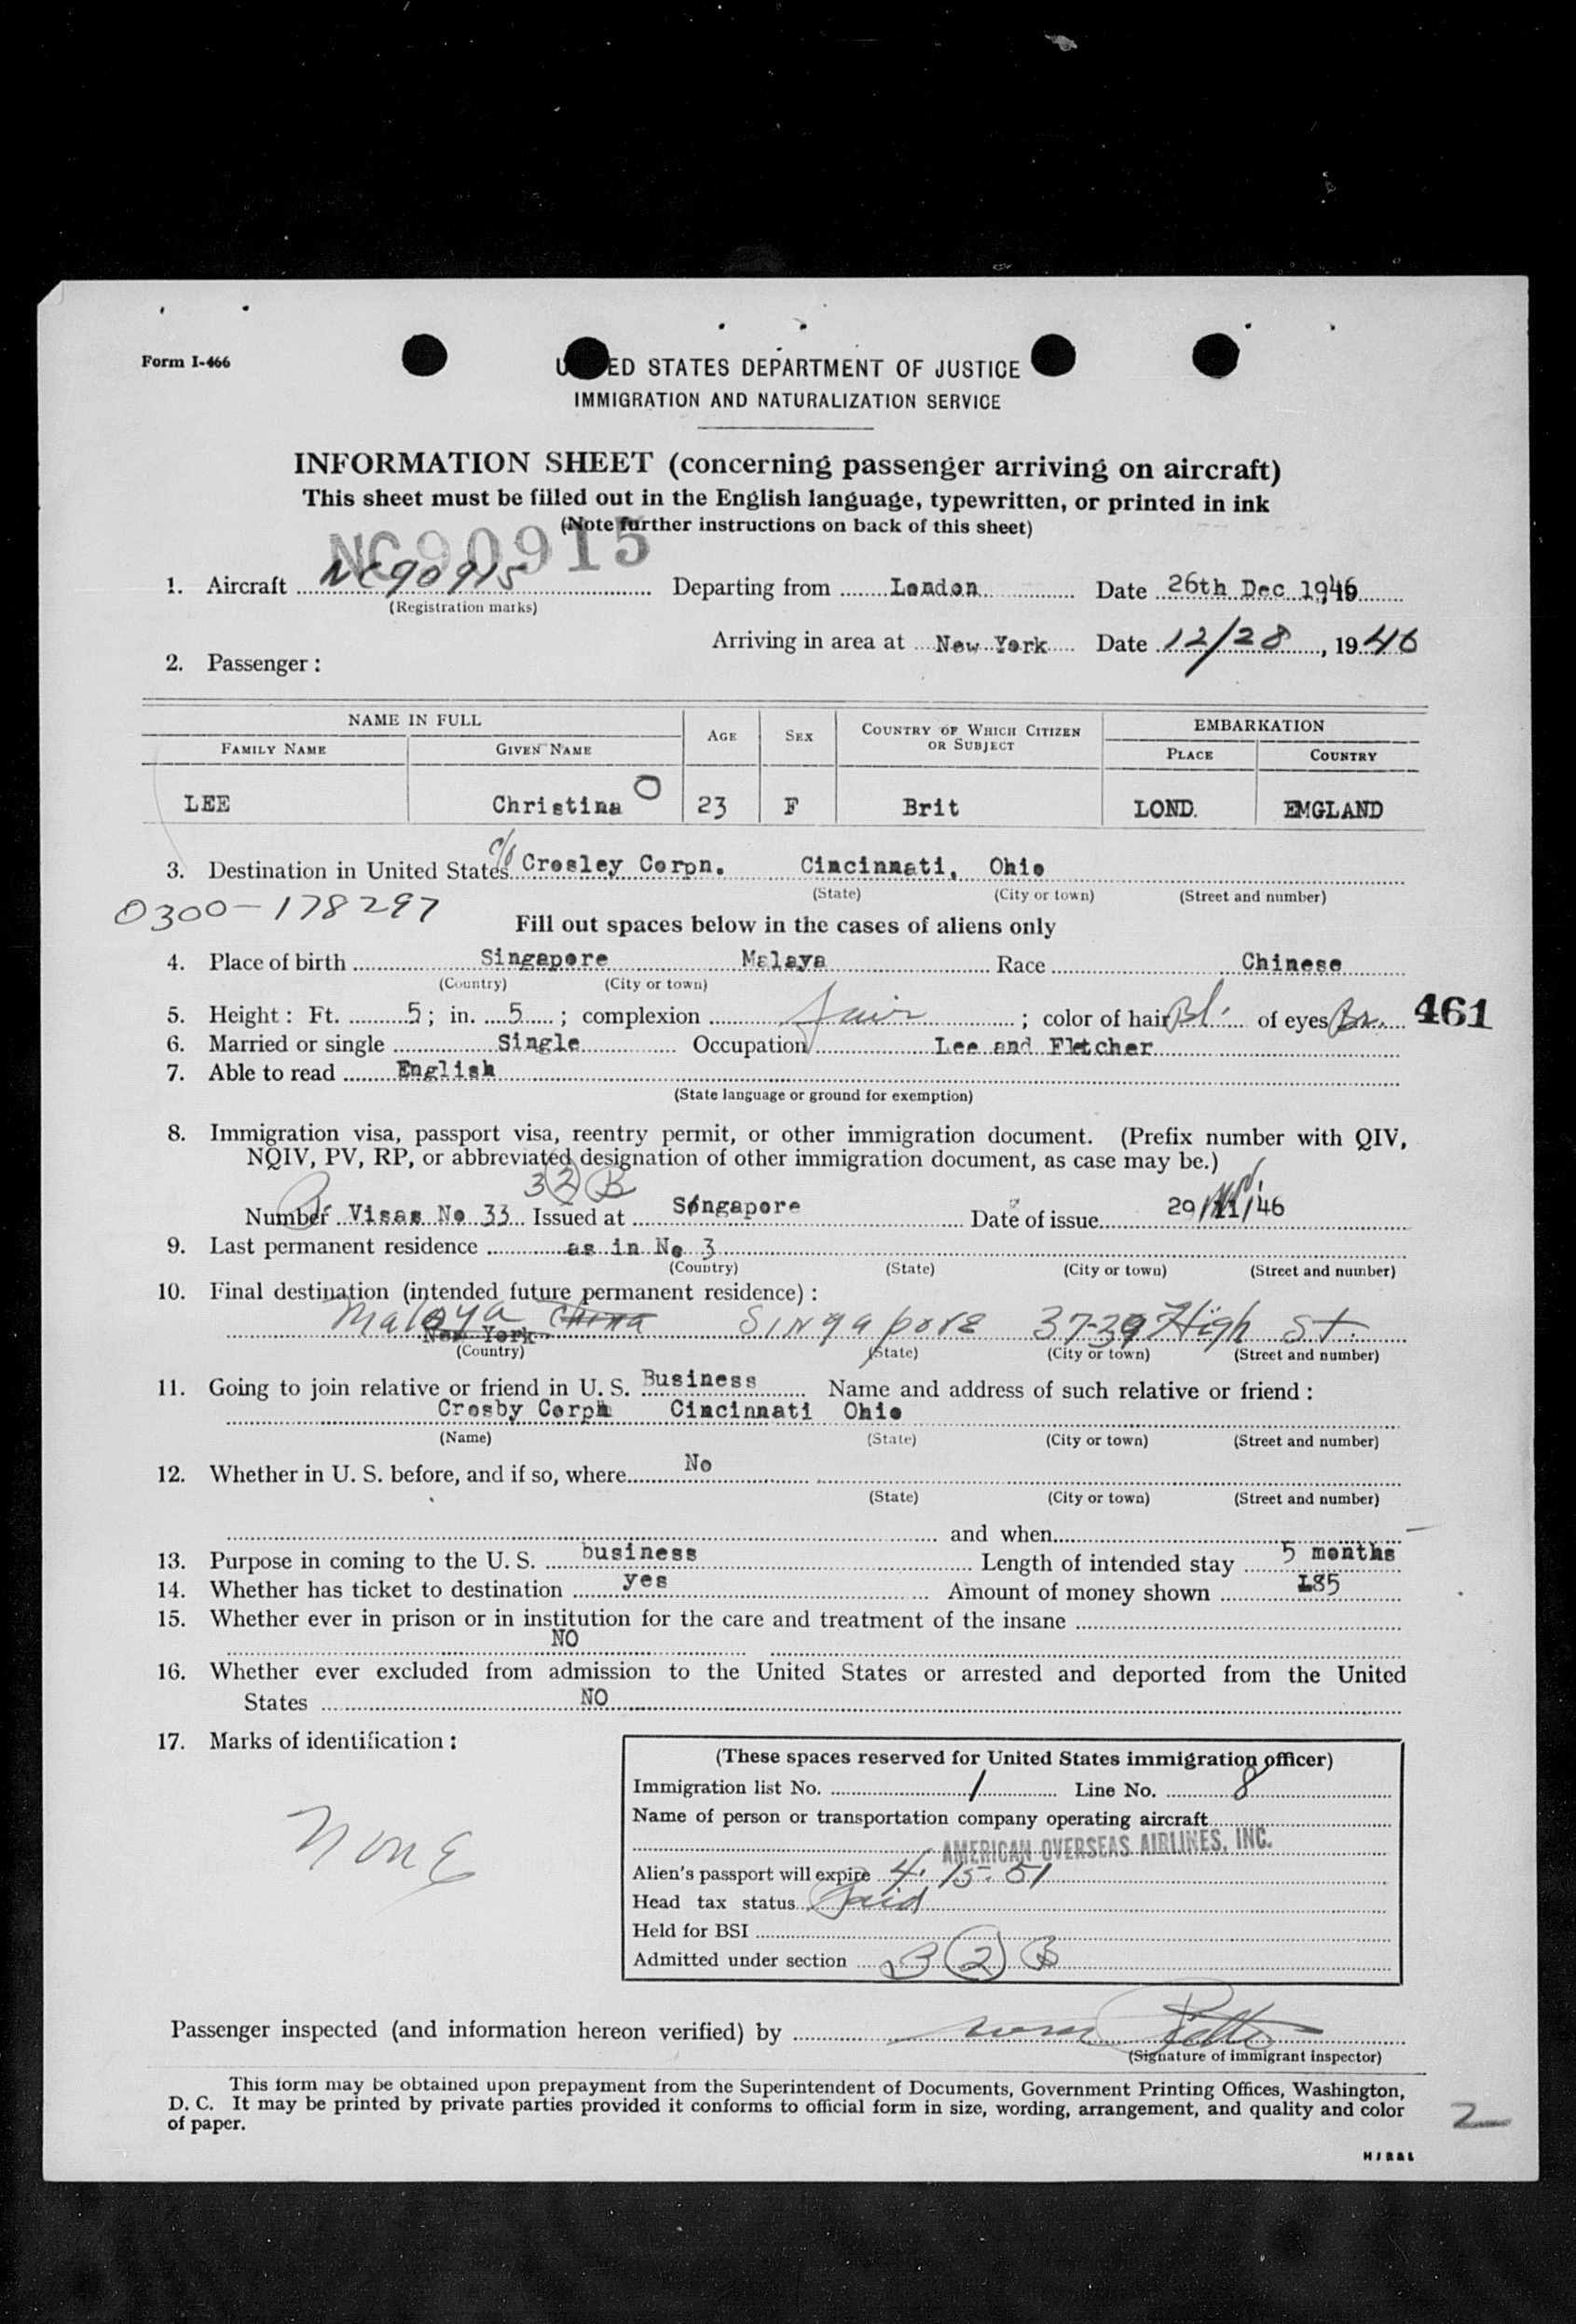 Form I-466
ED STATES DEPARTMENT OF JUSTICE
IMMIGRATION AND NATURALIZATION SERVICE
INFORMATION SHEET (concerning passenger arriving on aircraft)
This sheet must be filled out in the English language, typewritten, or printed in ink
(Note further instructions on back of this sheet)
NC90915
1. Aircraft NC90915 Departing from London Date 26th Dec 1946
(Registration marks)
Arriving in area at New York Date 12/28, 1946
2. Passenger:
NAME IN FULL AGE SEX COUNTRY OF WHICH CITIZEN OR SUBJECT EMBARKATION
FAMILY NAME GIVEN NAME PLACE COUNTRY
LEE Christina O 23 F Brit LOND. EMGLAND
3. Destination in United States c/o Crosley Corpn. Cincinnati, Ohio
(State) (City or town) (Street and number)
0300-178297
Fill out spaces below in the cases of aliens only
4. Place of birth Singapore Malaya Race Chinese
(Country) (City or town)
5. Height: Ft. 5; in. 5; complexion fair; color of hair Bl. of eyes Br. 461
6. Married or single Single Occupation Lee and Fletcher
7. Able to read English
(State language or ground for exemption)
8. Immigration visa, passport visa, reentry permit, or other immigration document. (Prefix number with QIV,
NQIV, PV, RP, or abbreviated designation of other immigration document, as case may be.)
3 2 B
Number Visas No 33 Issued at Singapore Date of issue 29/11/46
9. Last permanent residence as in No 3
(Country) (State) (City or town) (Street and number)
10. Final destination (intended future permanent residence):
Malaya China Singapore 37-39 High St.
New York
(Country) (State) (City or town) (Street and number)
11. Going to join relative or friend in U. S. Business Name and address of such relative or friend:
Crosby Corpn Cincinnati Ohio
(Name) (State) (City or town) (Street and number)
12. Whether in U. S. before, and if so, where No
(State) (City or town) (Street and number)
and when
13. Purpose in coming to the U. S. business Length of intended stay 5 months
14. Whether has ticket to destination yes Amount of money shown £85
15. Whether ever in prison or in institution for the care and treatment of the insane
NO
16. Whether ever excluded from admission to the United States or arrested and deported from the United
States NO
17. Marks of identification:
None
(These spaces reserved for United States immigration officer)
Immigration list No. 1 Line No. 8
Name of person or transportation company operating aircraft
AMERICAN OVERSEAS AIRLINES, INC.
Alien's passport will expire 4. 15. 51
Head tax status Paid
Held for BSI
Admitted under section 3 2 B
Passenger inspected (and information hereon verified) by
(Signature of immigrant inspector)
This form may be obtained upon prepayment from the Superintendent of Documents, Government Printing Offices, Washington,
D. C. It may be printed by private parties provided it conforms to official form in size, wording, arrangement, and quality and color
of paper.
2